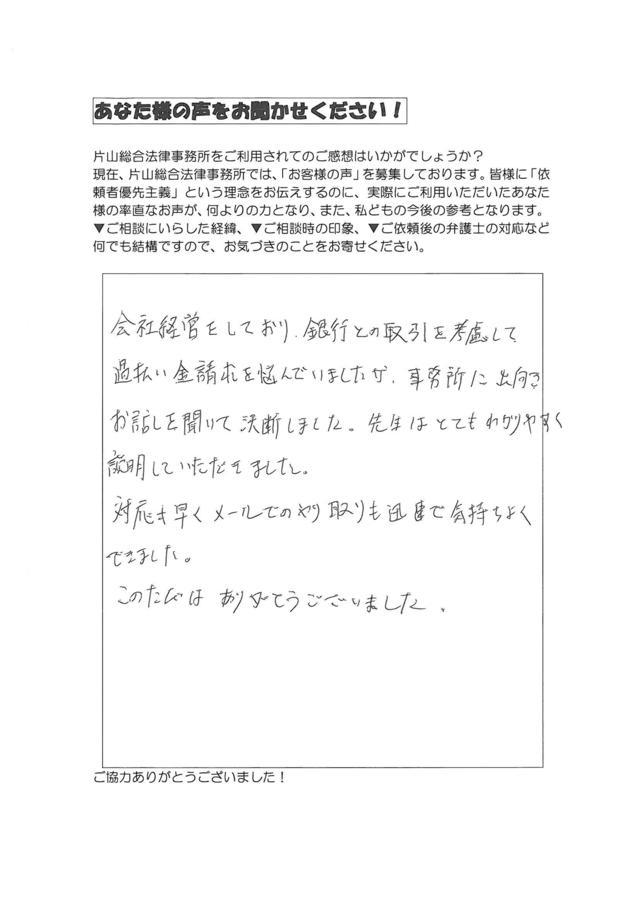 あなた様の声をお聞かせください！
片山総合法律事務所をご利用されてのご感想はいかがでしょうか？
現在、片山総合法律事務所では、「お客様の声」を募集しております。皆様に「依
頼者優先主義」という理念をお伝えするのに、実際にご利用いただいたあなた
様の率直なお声が、何よりの力となり、また、私どもの今後の参考となります。
▼ご相談にいらした経緯、▼ご相談時の印象、▼ご依頼後の弁護士の対応など
何でも結構ですので、お気づきのことをお寄せください。
会社経営をしており、銀行との取引を考慮して
過払い金請求を悩んでいましたが、事務所に出向き
お話しを聞いて決断しました。先生はとてもわかりやすく
説明していただきました。
対応も早くメールでのやり取りも迅速で気持ちよく
できました。
このたびはありがとうございました。
ご協力ありがとうございました！